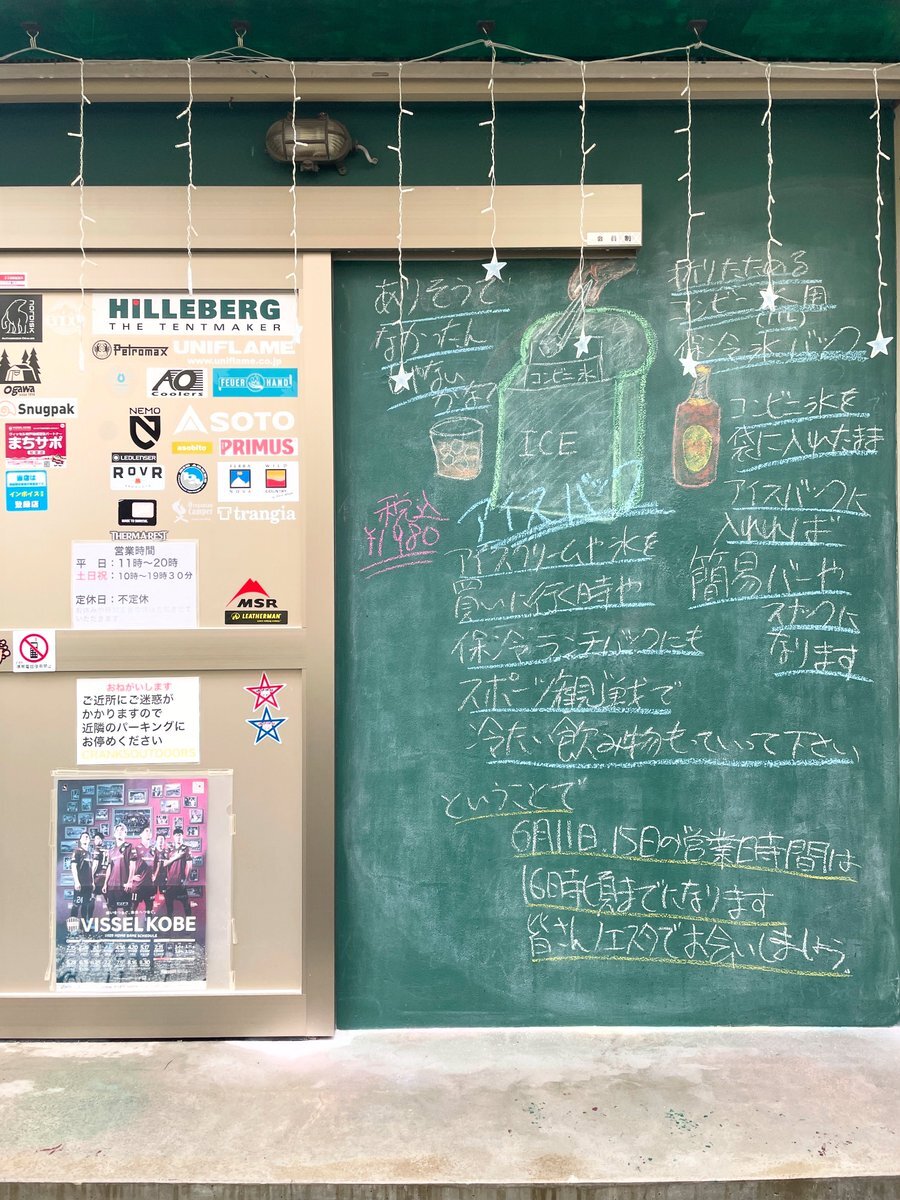 会員制
NORDISK
HILLEBERG
THE TENTMAKER
Petromax
UNIFLAME
www.uniflame.co.jp
ogawa
AO
Coolers
FEUER HAND
Snugpak
NEMO
SOTO
asobito
PRIMUS
まちサポ
LEDLENSER
ROVR
TERRA
NOVA
WILD
COUNTRY
当店は
インボイス
登録店
trangia
THERM-A-REST
営業時間
平　日：11時～20時
土日祝：10時～19時30分
定休日：不定休
お休みや時間変更有り
MSR
LEATHERMAN
おねがいします
ご近所にご迷惑が
かかりますので
近隣のパーキングに
お停めください
CRANKSOUTDOORS
VISSEL KOBE
ありそうで
なかったん
じゃない
かな?
折りたためる
コンビニ氷用
保冷氷バック
コンビニ氷
ICE
アイスバック
税込
¥1980
アイスクリームや氷を
買いに行く時や
保冷ランチバックにも
スポーツ観戦で
冷たい飲み物もっていって下さい
コンビニ氷を
袋に入れたまま
アイスバックに
入れれば
簡易バーや
スナックに
なります
ということで
6月11日、15日の営業時間は
16時頃までになります
皆さんノエスタでお会いしましょう